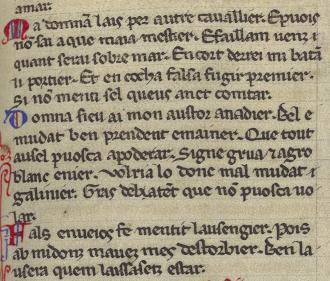 amar.
Ma domna lais per autre cavallier. E puois
no sai a que maia mestier. E faillam uenz i
quant serai sobre mar. En cort de rei mi batan
li portier. Et en cocha falsa fugir premier.
Si no menti sel que us anet comtar.
Domna sieu ai mon austor anadier. bel e
mudat ben prendent e mainer. Que tout
ausel puosca apoderar. Signe grua & agro
blanc e nier. Volria lo donc mal mudat i
galinier. Gras debaten que no puosca uo
lar.
Fals enueios fe mentit lausengier. Pois
ab midonz mauez mes destorbier. Ben la
usera quem laissasetz estar.